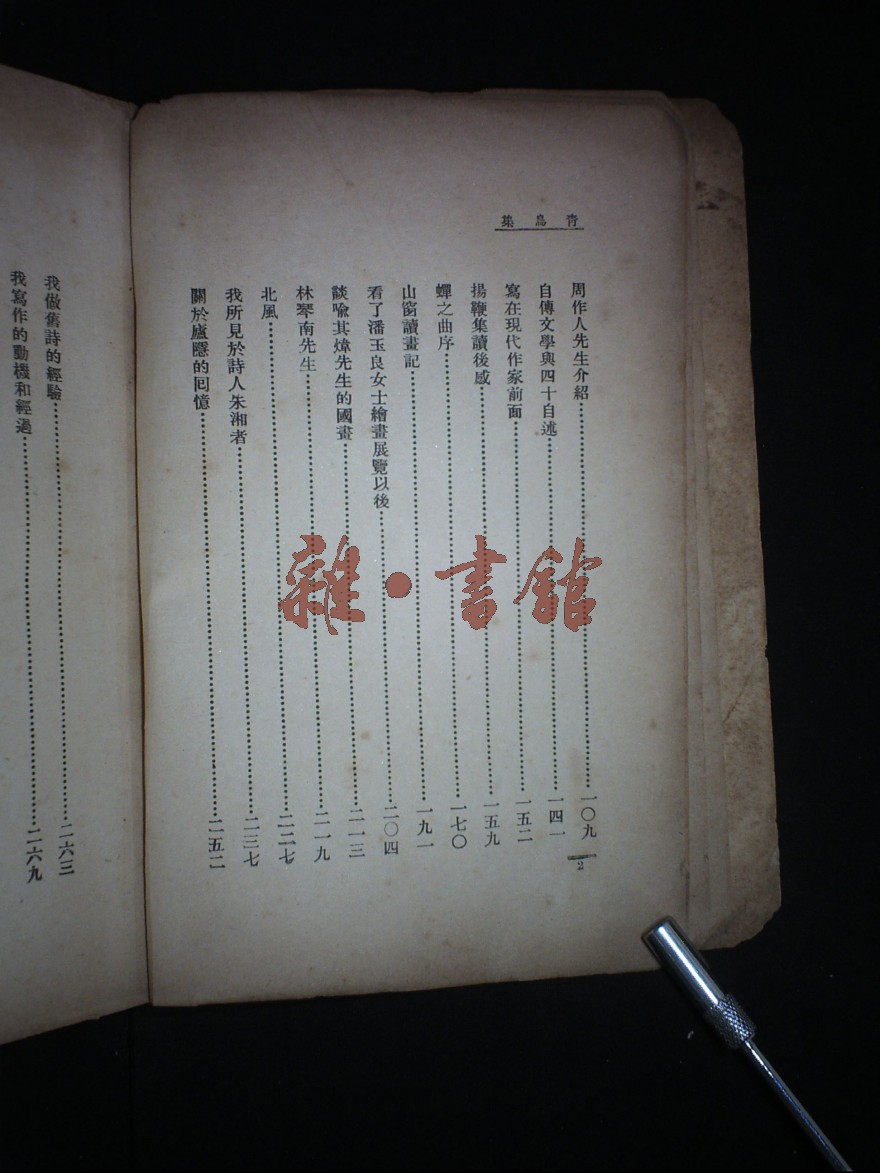 青鳥集
周作人先生介紹……一〇九
自傳文學與四十自述……一四一
寫在現代作家前面……一五二
揚鞭集讀後感……一五九
蟬之曲序……一七〇
山窗讀畫記……一九一
看了潘玉良女士繪畫展覽以後……二〇四
談喻其煒先生的國畫……二一三
林琴南先生……二一九
北風……二二七
我所見於詩人朱湘者……二三七
關於廬隱的回憶……二五二
2
我做舊詩的經驗……二六三
我寫作的動機和經過……二六九
雜·書館